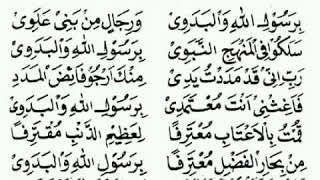 بِرَسُوْلِ اللهِ وَالْبَدَوِىْ وَرِجَالٍ مِنْ بَنِىْ عَلَوِىْ
سَلَكُوْا فِى الْمَنْهَجِ النَّبَوِىْ بِرَسُوْلِ اللهِ وَالْبَدَوِىْ
رَبِّ اِنِّى قَدْ مَدَدْتُ يَدِىْ مِنْكَ اَرْجُوْ فَائِضَ الْمَدَدِ
فَاَغِثْنِىْ اَنْتَ مُعْتَمَدِىْ بِرَسُوْلِ اللهِ وَالْبَدَوِىْ
قُمْتُ بِالْاَعْتَابِ مُعْتَرِفًا لِعَظِيْمِ الذَّنْبِ مُقْتَرِفًا
مِنْ بِحَارِ الْفَضْلِ مُغْتَرِفًا بِرَسُوْلِ اللهِ وَالْبَدَوِىْ